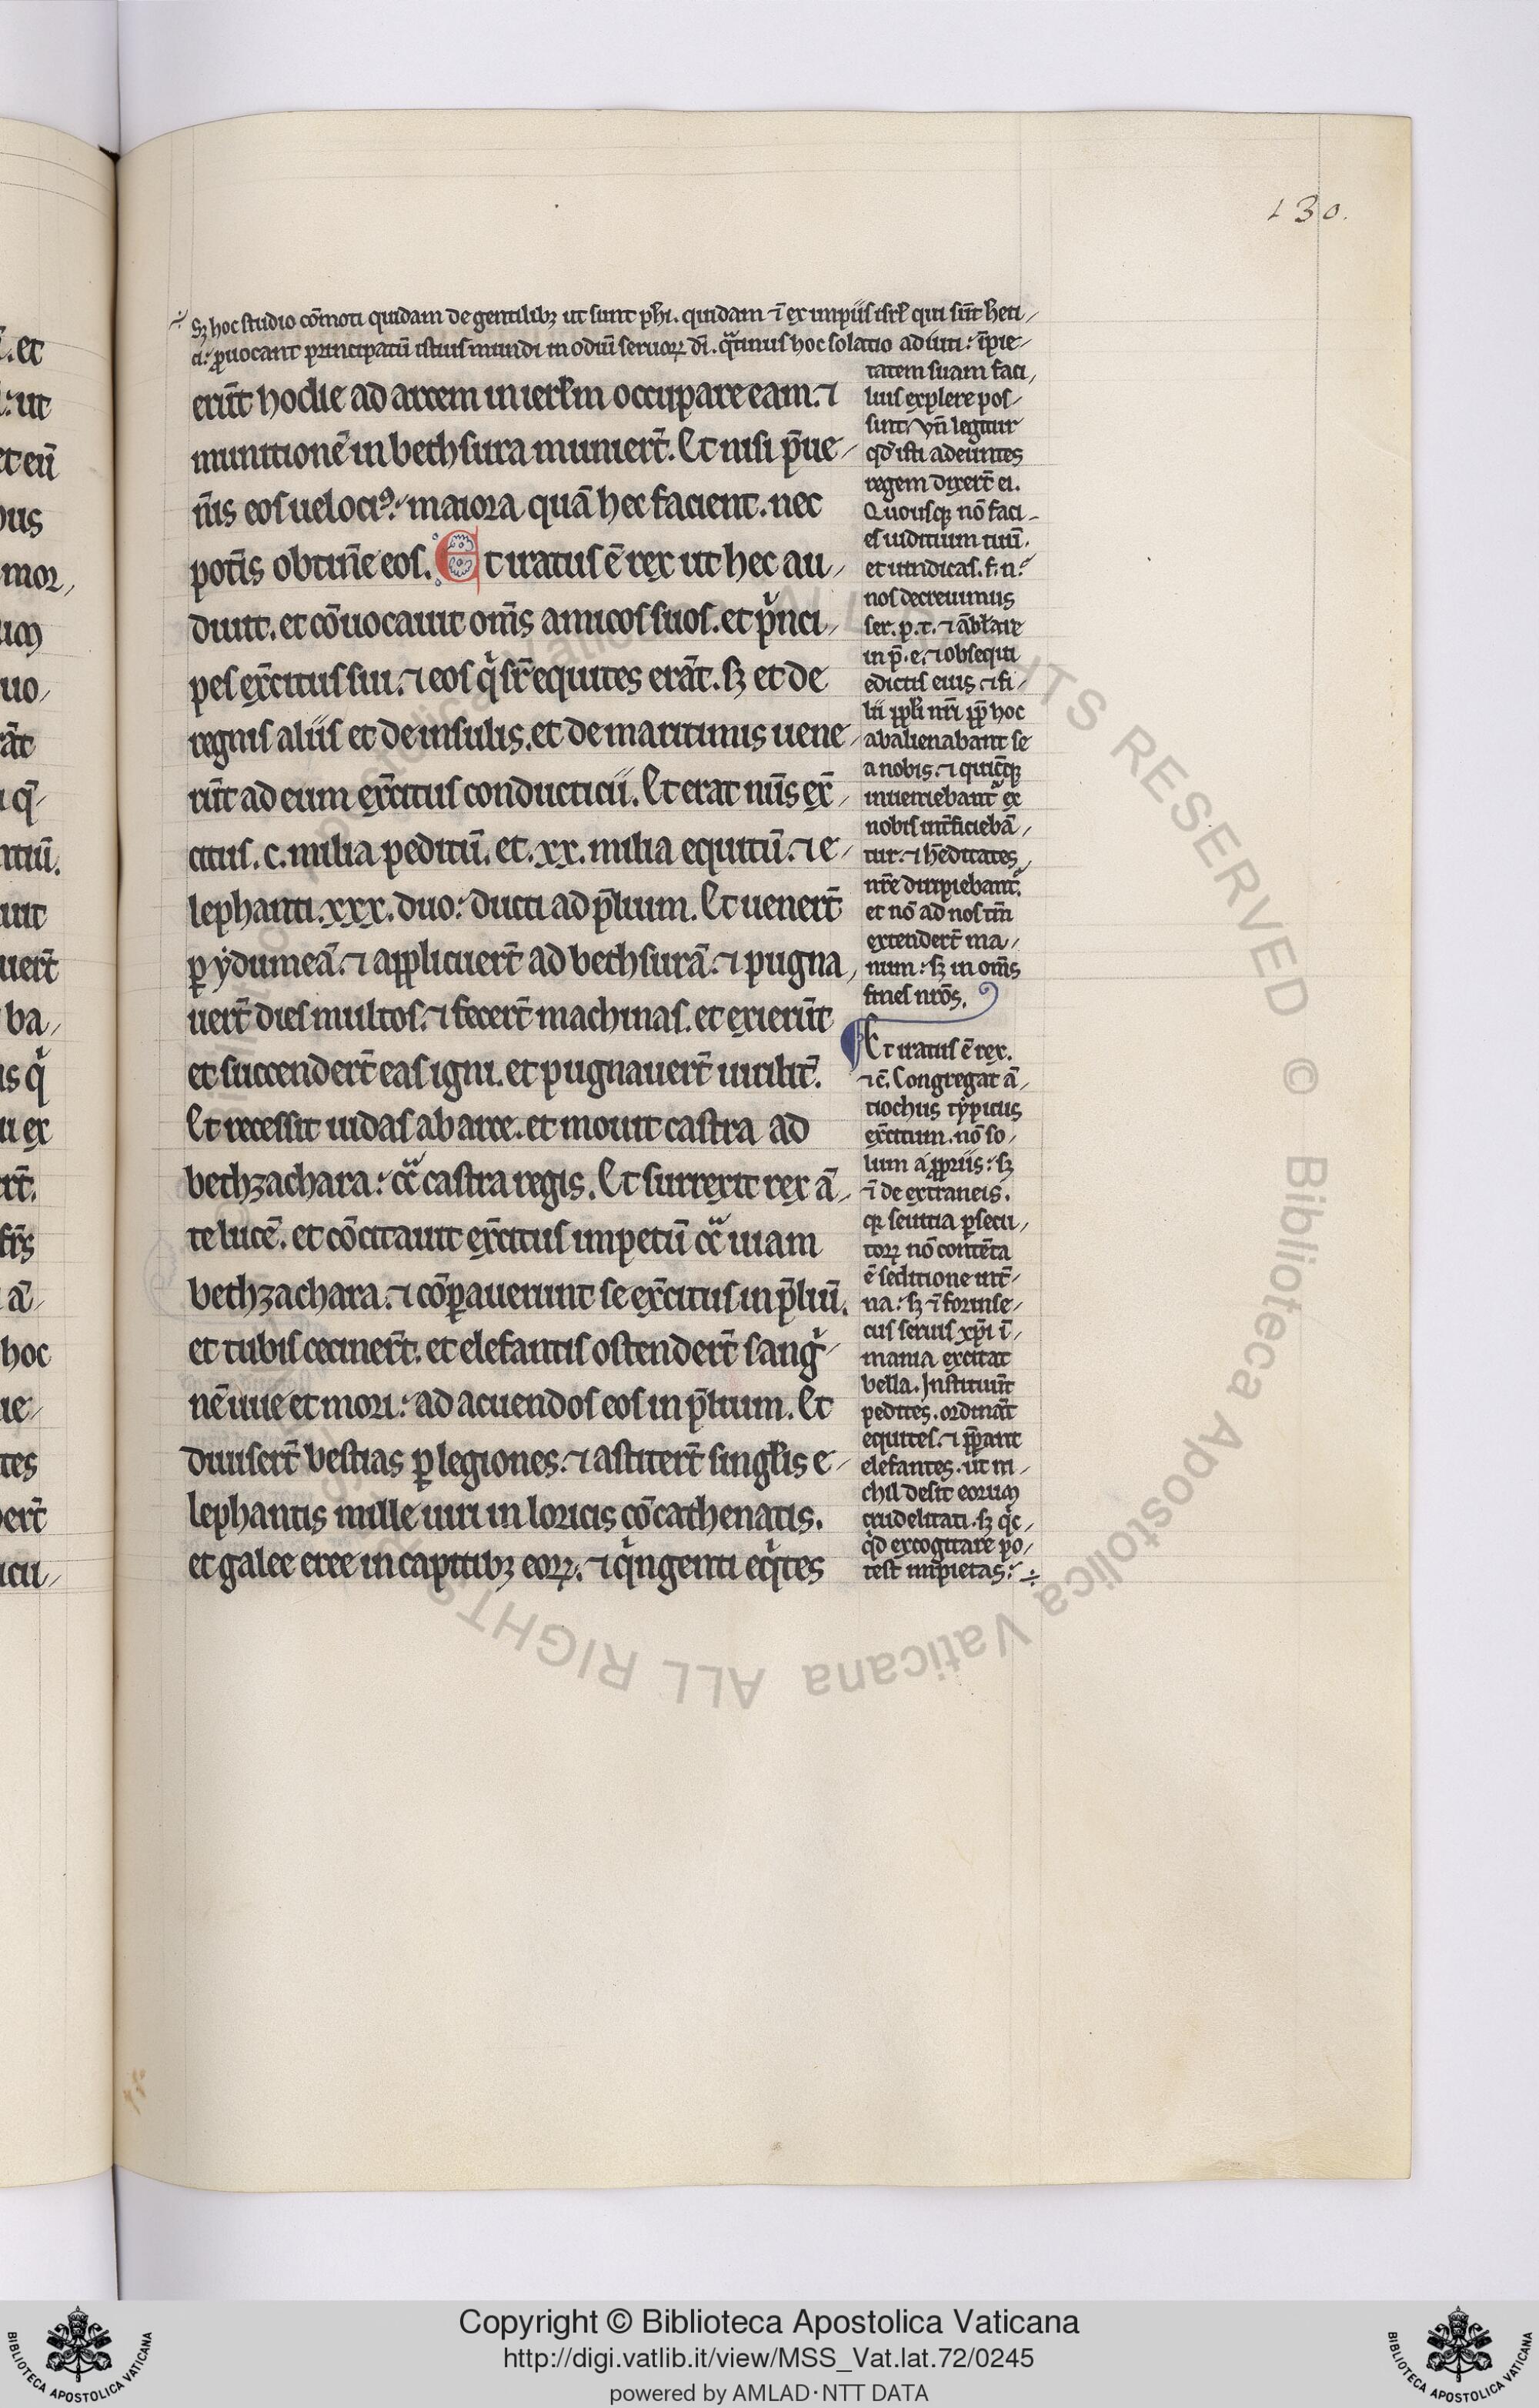 130.
Sꝫ hoc studio cōmoti quidam de gentilibꝫ ut sunt phi. quidam ⁊ ex impiis isrl̄ qui sūt heti/
ci: ꝓuocant principatū istius mundi in odiū seruoꝝ dī. qͣtinus hoc solatio adiuti: īpie/
erūt hodie ad arcem in ierl̄m occupare eam. ⁊
munitionē in bethsura muniert̄. Et nisi p̄ue/
n̄is eos uelociꝰ: maiora quā hec facient. nec
potīs obtin̄e eos. Et iratus ē rex ut hec au/
diuit. et cōuocauit om̄s amicos suos. et pͥnci/
pes ex̄citus sui. ⁊ eos qͥ sr̄ equites erāt. sꝫ et de
regnis aliis et de insulis. et de maritimis uene/
rūt ad eum ex̄citus conducticii. Et erat nūs ex̄/
citus. c. milia peditū. et. xx. milia equitū. ⁊ e/
lephanti. xxx. duo: ducti ad p̄lium. Et uenert̄
ꝑ ydumeā. ⁊ applicuert̄ ad bethsurā. ⁊ pugna/
uert̄ dies multos. ⁊ fecert̄ machinas. et exierūt
et succendert̄ eas igni. et pugnauert̄ uirilit̄.
Et recessit iudas ab arce. et mouit castra ad
bethzachara: cͣ castra regis. Et surrexit rex ā/
te lucē. et cōcitauit ex̄citus impetū cͣ uiam
bethzachara. ⁊ cōꝑauerunt se ex̄citus in p̄liū.
et tubis cecinert̄. et elefantis ostendert̄ sangͥ/
nē uue et mori: ad acuendos eos in p̄lium. Et
diuisert̄ bestias ꝑ legiones. ⁊ astitert̄ singl̄is e/
lephantis mille uiri in loricis cōcathenatis.
et galee eree in capitibꝫ eoꝝ. ⁊ qͥngenti eqͥtes
tatem suam faci/
lius explere pos/
sint. vn̄ legitur
qd̄ isti adeuntes
regem dixert̄ ei.
Quousqꝫ nō faci/
es iuditium tuū.
et uindicas. f. n.
nos decreuimus
ser. p. t. ⁊ ābl̄are
in p̄. e. ⁊ obsequi
edictis eius. ⁊ fi/
lii ppl̄i nr̄i pp̄ hoc
abalienabant se
a nobis. ⁊ quicūqꝫ
inueniebant᷑ ex
nobis int̄ficiebā/
tur. ⁊ h̄editates
nr̄e diripiebant᷑.
et nō ad nos tm̄
extendert̄ ma/
num: sꝫ in om̄s
fines nr̄os.
Et iratus ē rex.
⁊ c̄. Congregat ā/
tiochus typicus
ex̄citum. nō so/
lum a ꝓpriis: sꝫ
⁊ de extraneis.
qꝛ seuitia ꝑsecu/
toꝝ nō contēta
ē seditione int̄/
na: sꝫ ⁊ forinse/
cus seruis xp̄i ī/
mania excitat
bella. Instituūt
pedites. ordināt
equites. ⁊ p̄ꝑant
elefantes. ut ni/
chil desit eorum
crudelitati. sꝫ qͥc/
qͥd excogitare po/
test impietas:
Copyright © Biblioteca Apostolica Vaticana
http://digi.vatlib.it/view/MSS_Vat.lat.72/0245
powered by AMLAD·NTT DATA